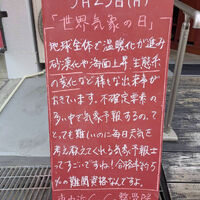 3月23日(月)
「世界気象の日」
地球全体で温暖化が進み
砂漠化や海面上昇、生態系
の変化など様々な出来事が
おきています。不確定要素の
多い中で気象予報するのって
とっても難しいのに毎日天気を
考え教えてくれる気象予報士
ってすごいですね!合格率約5
%の難関資格なんですよ。
整骨院